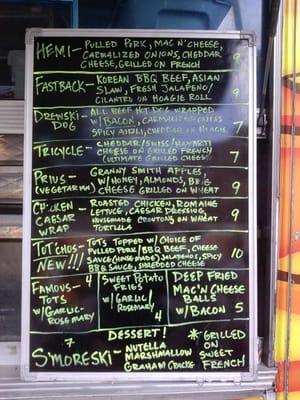 HEMI- PULLED PORK, MAC N' CHEESE,
CARMALIZED ONIONS, CHEDDAR
CHEESE, GRILLED ON FRENCH 9
FASTBACK- KOREAN BBQ BEEF, ASIAN
SLAW, FRESH JALAPENO/
CILANTRO ON HOAGIE ROLL 9
DREWSKI- ALL BEEF HOT DOG WRAPPED
DOG W/BACON, CARMALIZED ONIONS
SPICY AIOLI, CHEDDAR ON HOAGIE 7
TRICYCLE- CHEDDAR/SWISS/HAVARTI
CHEESE ON GRILLED FRENCH
(ULTIMATE GRILLED CHEESE) 7
PRIUS- GRANNY SMITH APPLES,
(VEGETARIAN) HONEY, ALMONDS, BRIE
CHEESE GRILLED ON WHEAT 9
CHICKEN ROASTED CHICKEN, ROMAINE
CAESAR LETTUCE, CAESAR DRESSING,
WRAP HOMEMADE CROUTONS ON WHEAT
TORTILLA 9
TOTCHOS- TOTS TOPPED W/ CHOICE OF
NEW!!! PULLED PORK/BBQ BEEF, CHEESE
SAUCE (HOMEMADE) JALAPENOS, SPICY
BBQ SAUCE, SHREDDED CHEESE 10
FAMOUS- 4
TOTS
W/GARLIC-
ROSEMARY
SWEET POTATO
FRIES
W/GARLIC/
ROSEMARY
4
DEEP FRIED
MAC'N CHEESE
BALLS
W/BACON 5
DESSERT!
7
S'MORESKI- NUTELLA
MARSHMALLOW
GRAHAM CRACKE
* GRILLED
ON
SWEET
FRENCH